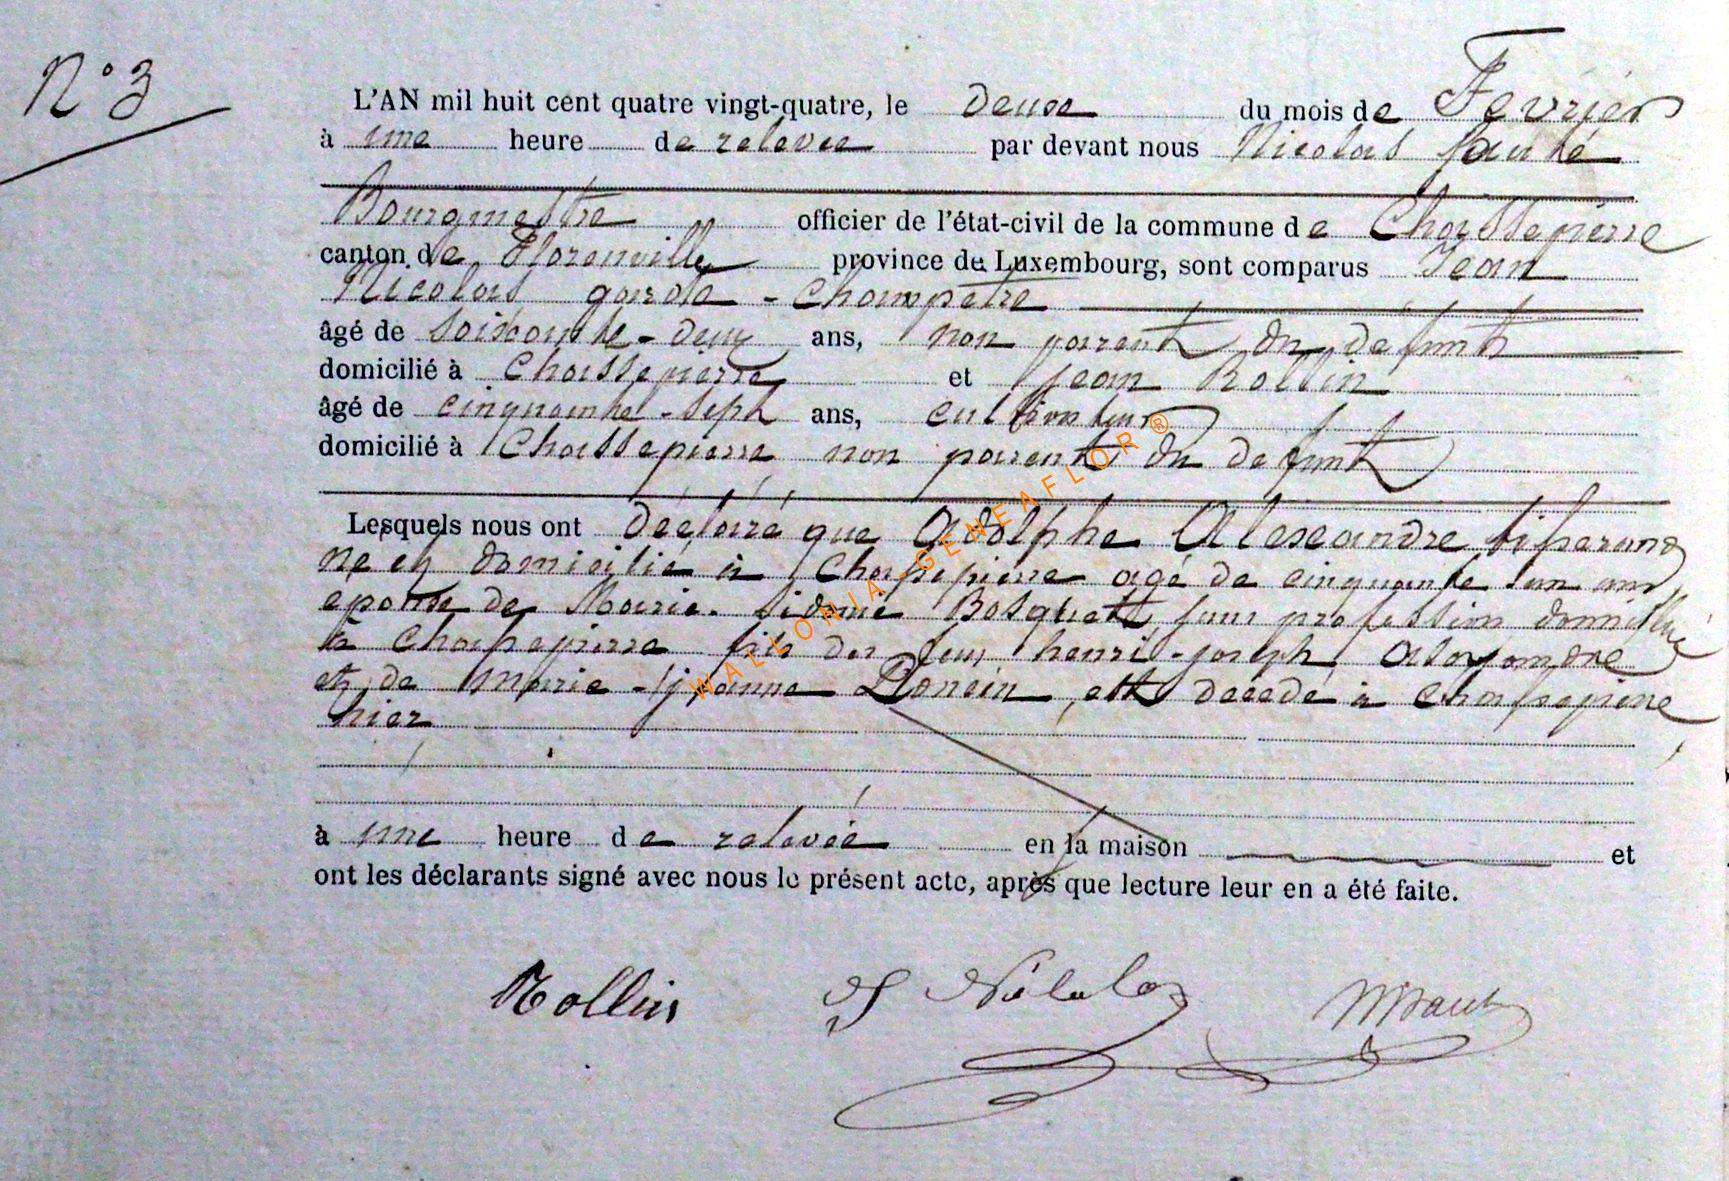 N° 3
L'AN mil huit cent quatre vingt-quatre, le deux du mois de Fevrier
à une heure de relevée par devant nous Nicolas
Bourgmestre officier de l'état-civil de la commune de Chassepierre
canton de Florenville province de Luxembourg, sont comparus Jean
Nicolas garde - champetre
âgé de soixante - deux ans, non parent du défunt
domicilié à Chassepierre et Jean Rollin
âgé de cinquante - sept ans, cultivateur
domicilié à Chassepierre non parent du defunt
Lesquels nous ont déclaré que Adolphe Alexandre
né et domicilié à Chassepierre agé de cinquante un ans
epoux de Marie - Sidonie Bosquet sans profession domiciliée
à Chassepierre fils de feu henri - joseph Alexandre
et de Marie - jeanne Poncin, est décedé à Chassepierre
hier
à une heure de relevée en la maison et
ont les déclarants signé avec nous le présent acte, après que lecture leur en a été faite.
Rollin J Nicolas
WALLONIA - GENEAFLOR ®